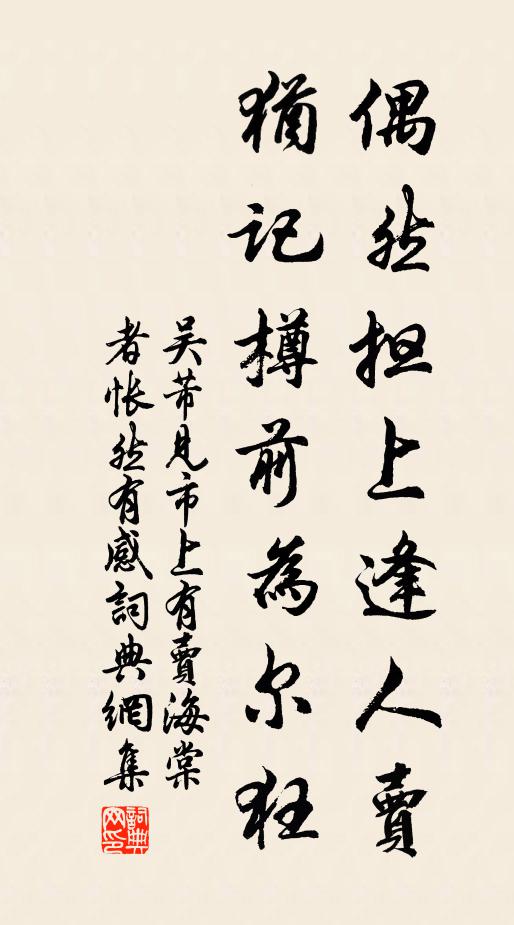 偶然担上逢人賣
猶記樽前為尔狂
吴芾見市上有賣海棠
者悵然有感詞典網集
詞典
网印